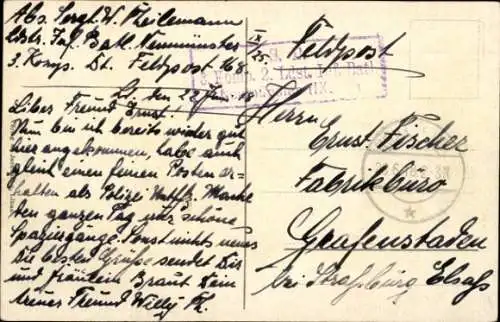 Abs. Sergt. W. Theilemann
Ldstr. Inf. Batl. Neumünster IX/25.
3. Komp. Dt. Feldpost 168
Feldpost
3. Komp. 2. Ldst. Inf. Batl.
IX.
den 22 Juni 18
Liber Freund Ernst!
Nun bin ich bereits wieder gut
hier angekommen, habe auch
gleich einen feinen Posten er-
halten als Polizei Untffz. Mache
den ganzen Tag nur schöne
Spaziergänge. Sonst nichts neues
Die besten Grüße sendet Dir
und fräulein Braut Dein
treuer Freund Willy Th.
Herrn
Ernst Fischer
Fabrikbüro
Grafenstaden
bei Straßburg Elsaß